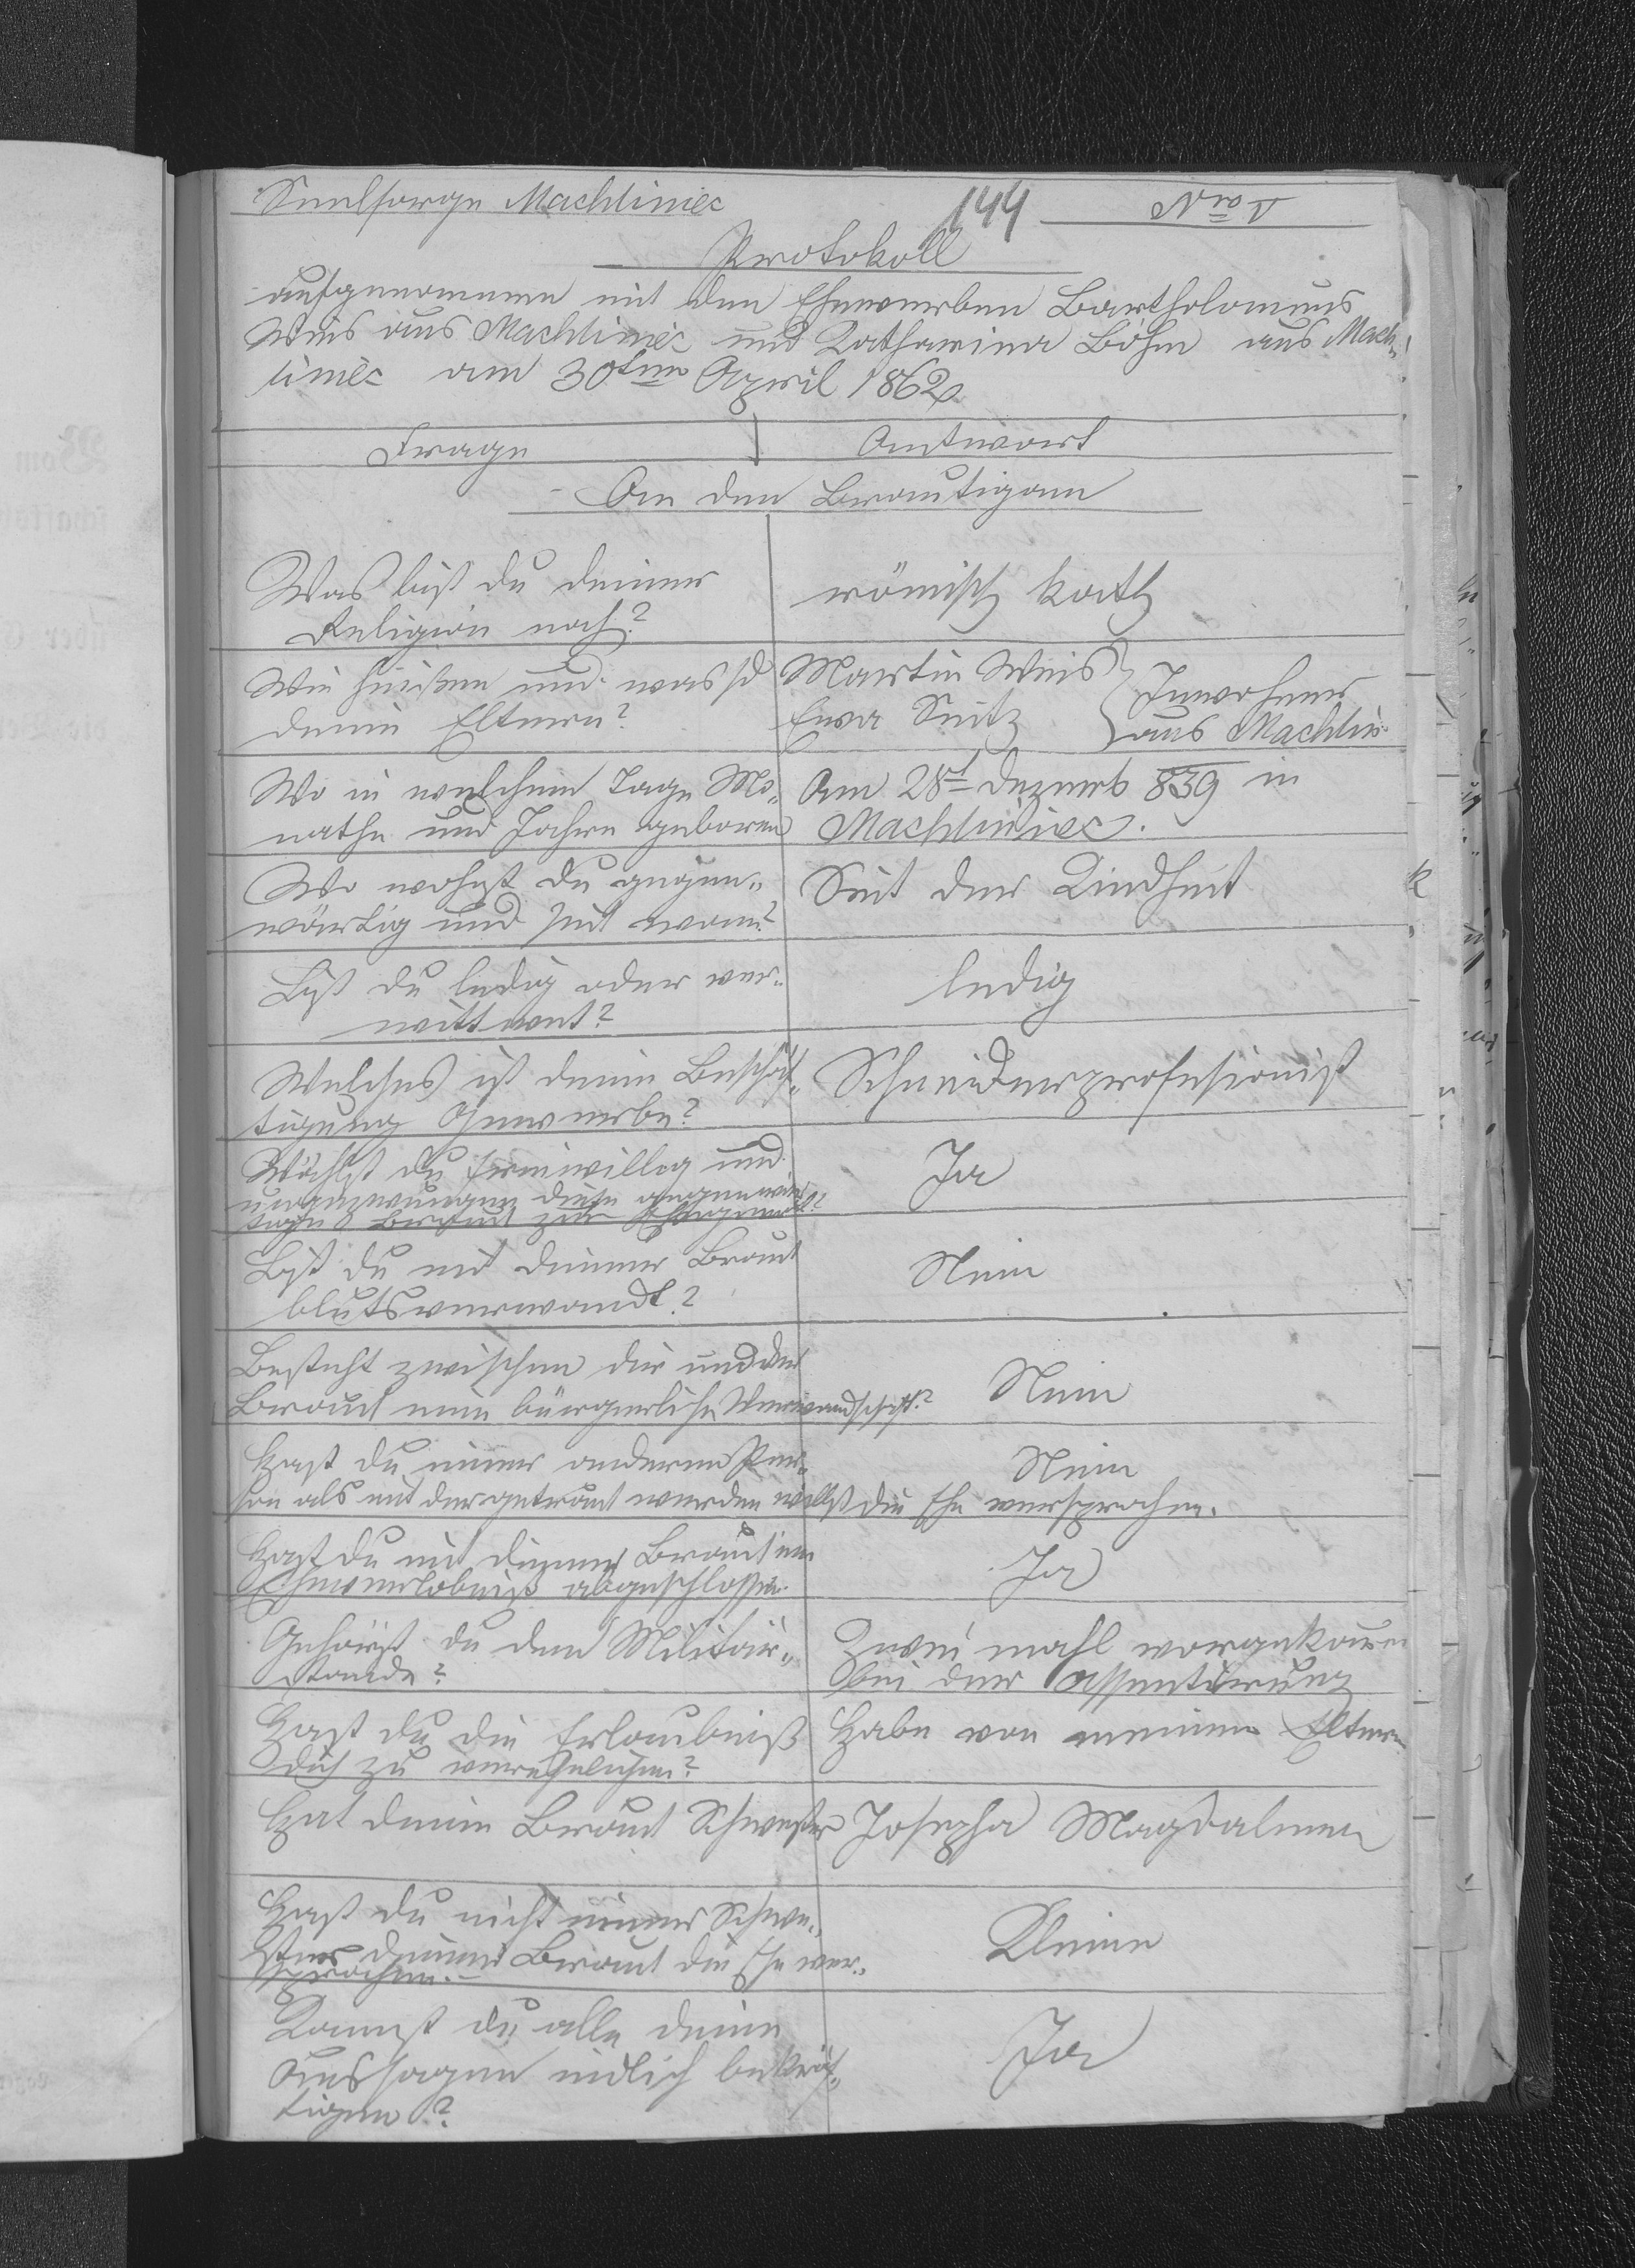 Seelsorge Machliniec
144
Protokoll
aufgenommen mit den Ehewerben Bartholomeus
Weis aus Machliniec und Katharina Böhm aus Mach-
liniec am 30ten April 1862
Frage
Antwort
An den Brautigam
Was bist du deiner
Religion nach?
römisch kath
Wie heißen und was sd
deine Eltern?
Martin Weis
Ewa Seitz
Inwohner
aus Machlin
Wo in welchem Tage Mo-
nathe und Jahre geboren
Am 28t Dezemb 839 in
Machliniec.
Wo wohnst du gegen-
wärtig und seit wann?
Seit der Kindheit
Bist du ledig oder ver-
wittwet?
ledig
Welches ist deine Beschäf-
tigung Gewerbe?
Schneiderprofesionist
Wählst du freiwillig und
ungezwungen diese gegenwär-
tige Braut zur
Ja
Bist du mit deiner Braut
blutsverwandt?
Nein
Besteht zwischen dir und der
Braut eine bürgerliche Verwandschaft?
Nein
Hast du einer anderen Per-
son als mit der getraut werden willst die Ehe versprochen.
Nein
Hast du mit deiner Braut ein
Eheverlöbniß abgeschlossen.
Ja
Gehörst du dem Militär-
stande?
Zwei mahl vorgekomen
bei der Assentirung
Hast du die Erlaubniß
dich zu verehelichen?
Habe von meinen Eltern
Hat deine Braut Schwester
Josepha Magdalena
Hast du nicht einer Schwe-
ster deiner Braut die Ehe ver-
sprochen.
Keine
Kannst du alle deine
Aussagen eidlich bekräf-
tigen?
Ja